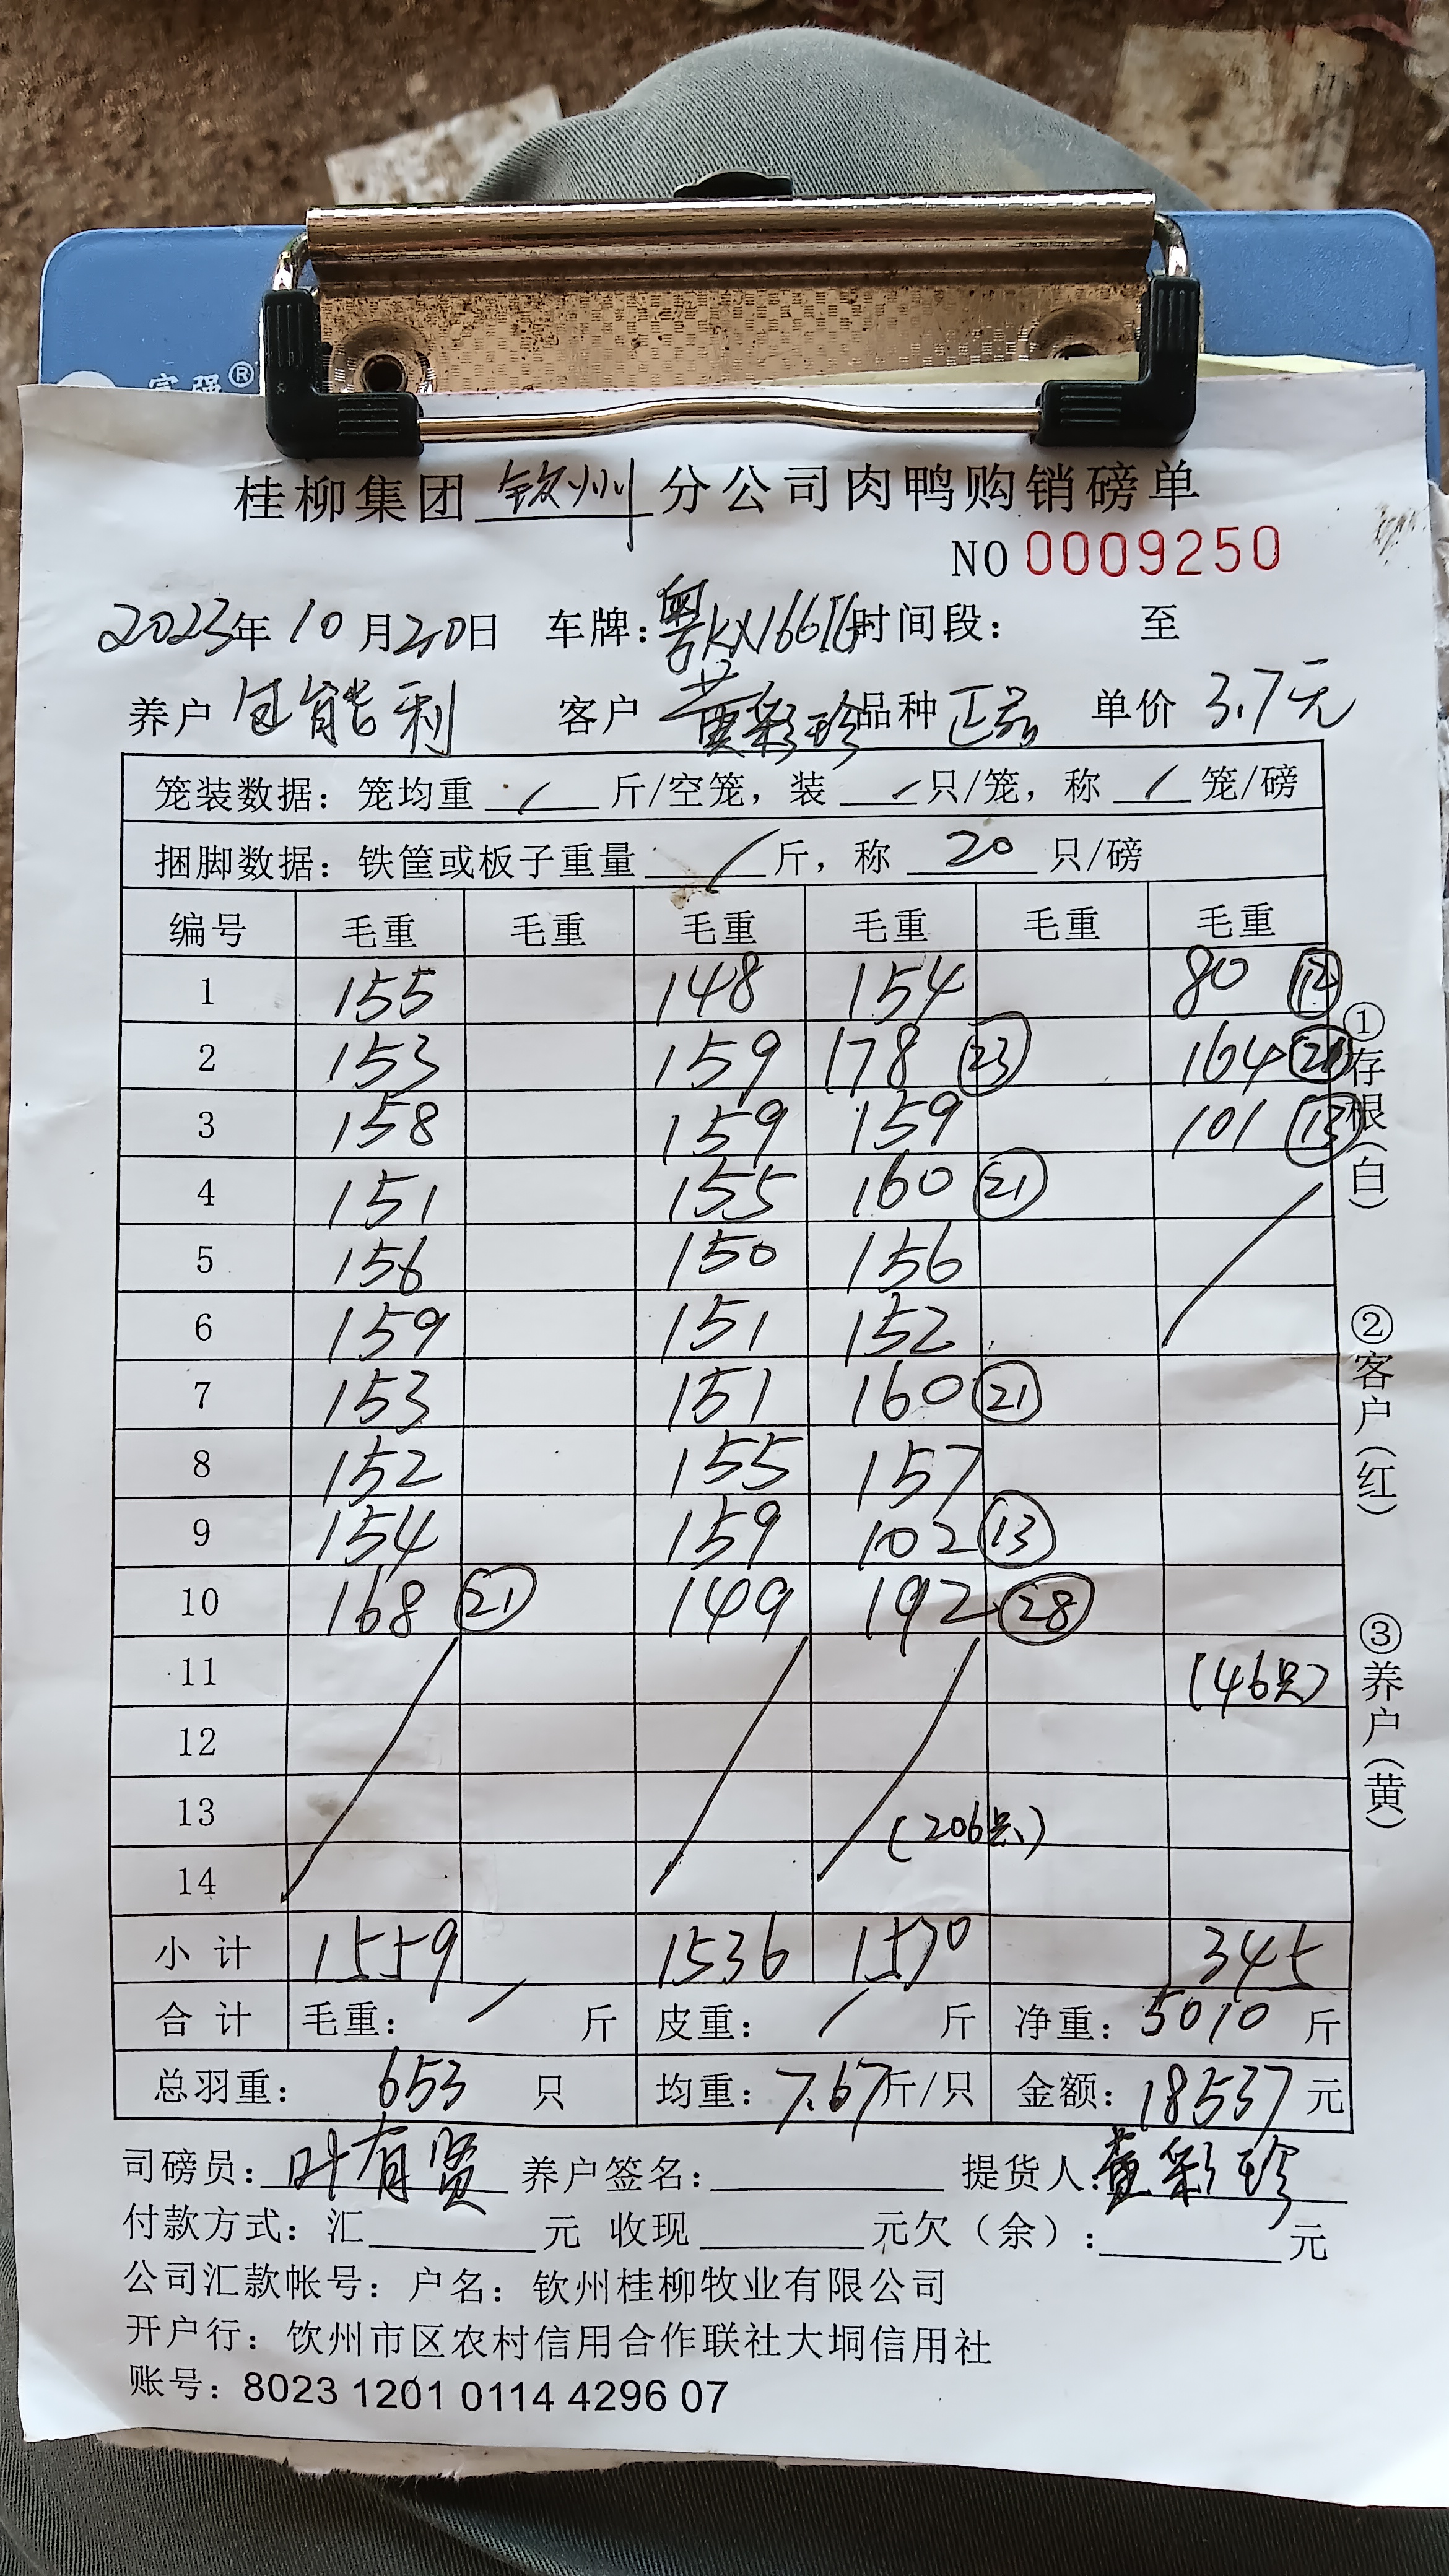 富强®
桂柳集团 钦州 分公司肉鸭购销磅单
NO 0009250
2023年 10月20日 车牌: 时间段: 至
养户 能利 客户 黄彩珍 品种 正品 单价 3.7元
笼装数据: 笼均重 / 斤/空笼, 装 / 只/笼, 称 / 笼/磅
捆脚数据: 铁筐或板子重量 / 斤, 称 20 只/磅
编号 毛重 毛重 毛重 毛重 毛重 毛重
1 155 148 154 80 ⑫
2 153 159 178 ㉓ 164 ㉑
3 158 159 159 101 ⑬
4 151 155 160 ㉑
5 156 150 156
6 159 151 152
7 153 151 160 ㉑
8 152 155 157
9 154 159 102 ⑬
10 168 ㉑ 149 192 ㉘
11 (46只)
12
13 (206只)
14
小计 1559 1536 1570 345
合计 毛重: / 斤 皮重: / 斤 净重: 5010 斤
总羽重: 653 只 均重: 7.67斤/只 金额: 18537 元
司磅员: 叶有贤 养户签名: 提货人: 黄彩珍
付款方式: 汇 元 收现 元欠(余): 元
公司汇款帐号: 户名: 钦州桂柳牧业有限公司
开户行: 饮州市区农村信用合作联社大垌信用社
账号: 8023 1201 0114 4296 07
①存根(白)
②客户(红)
③养户(黄)